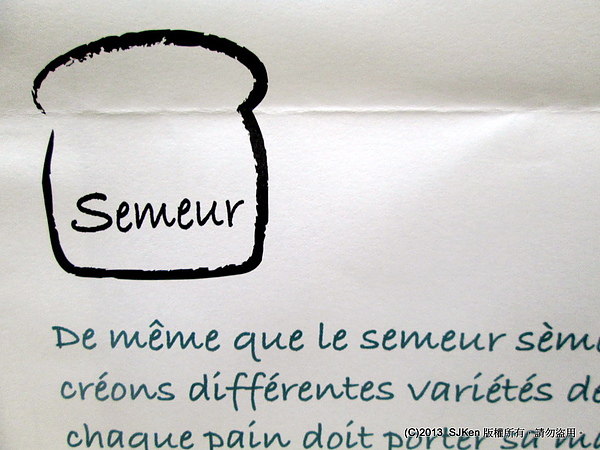 Semeur
De même que le semeur
créons différentes variétés de
chaque pain doit porter sa
(C)2013, SJKen 版權所有。請勿盜用。